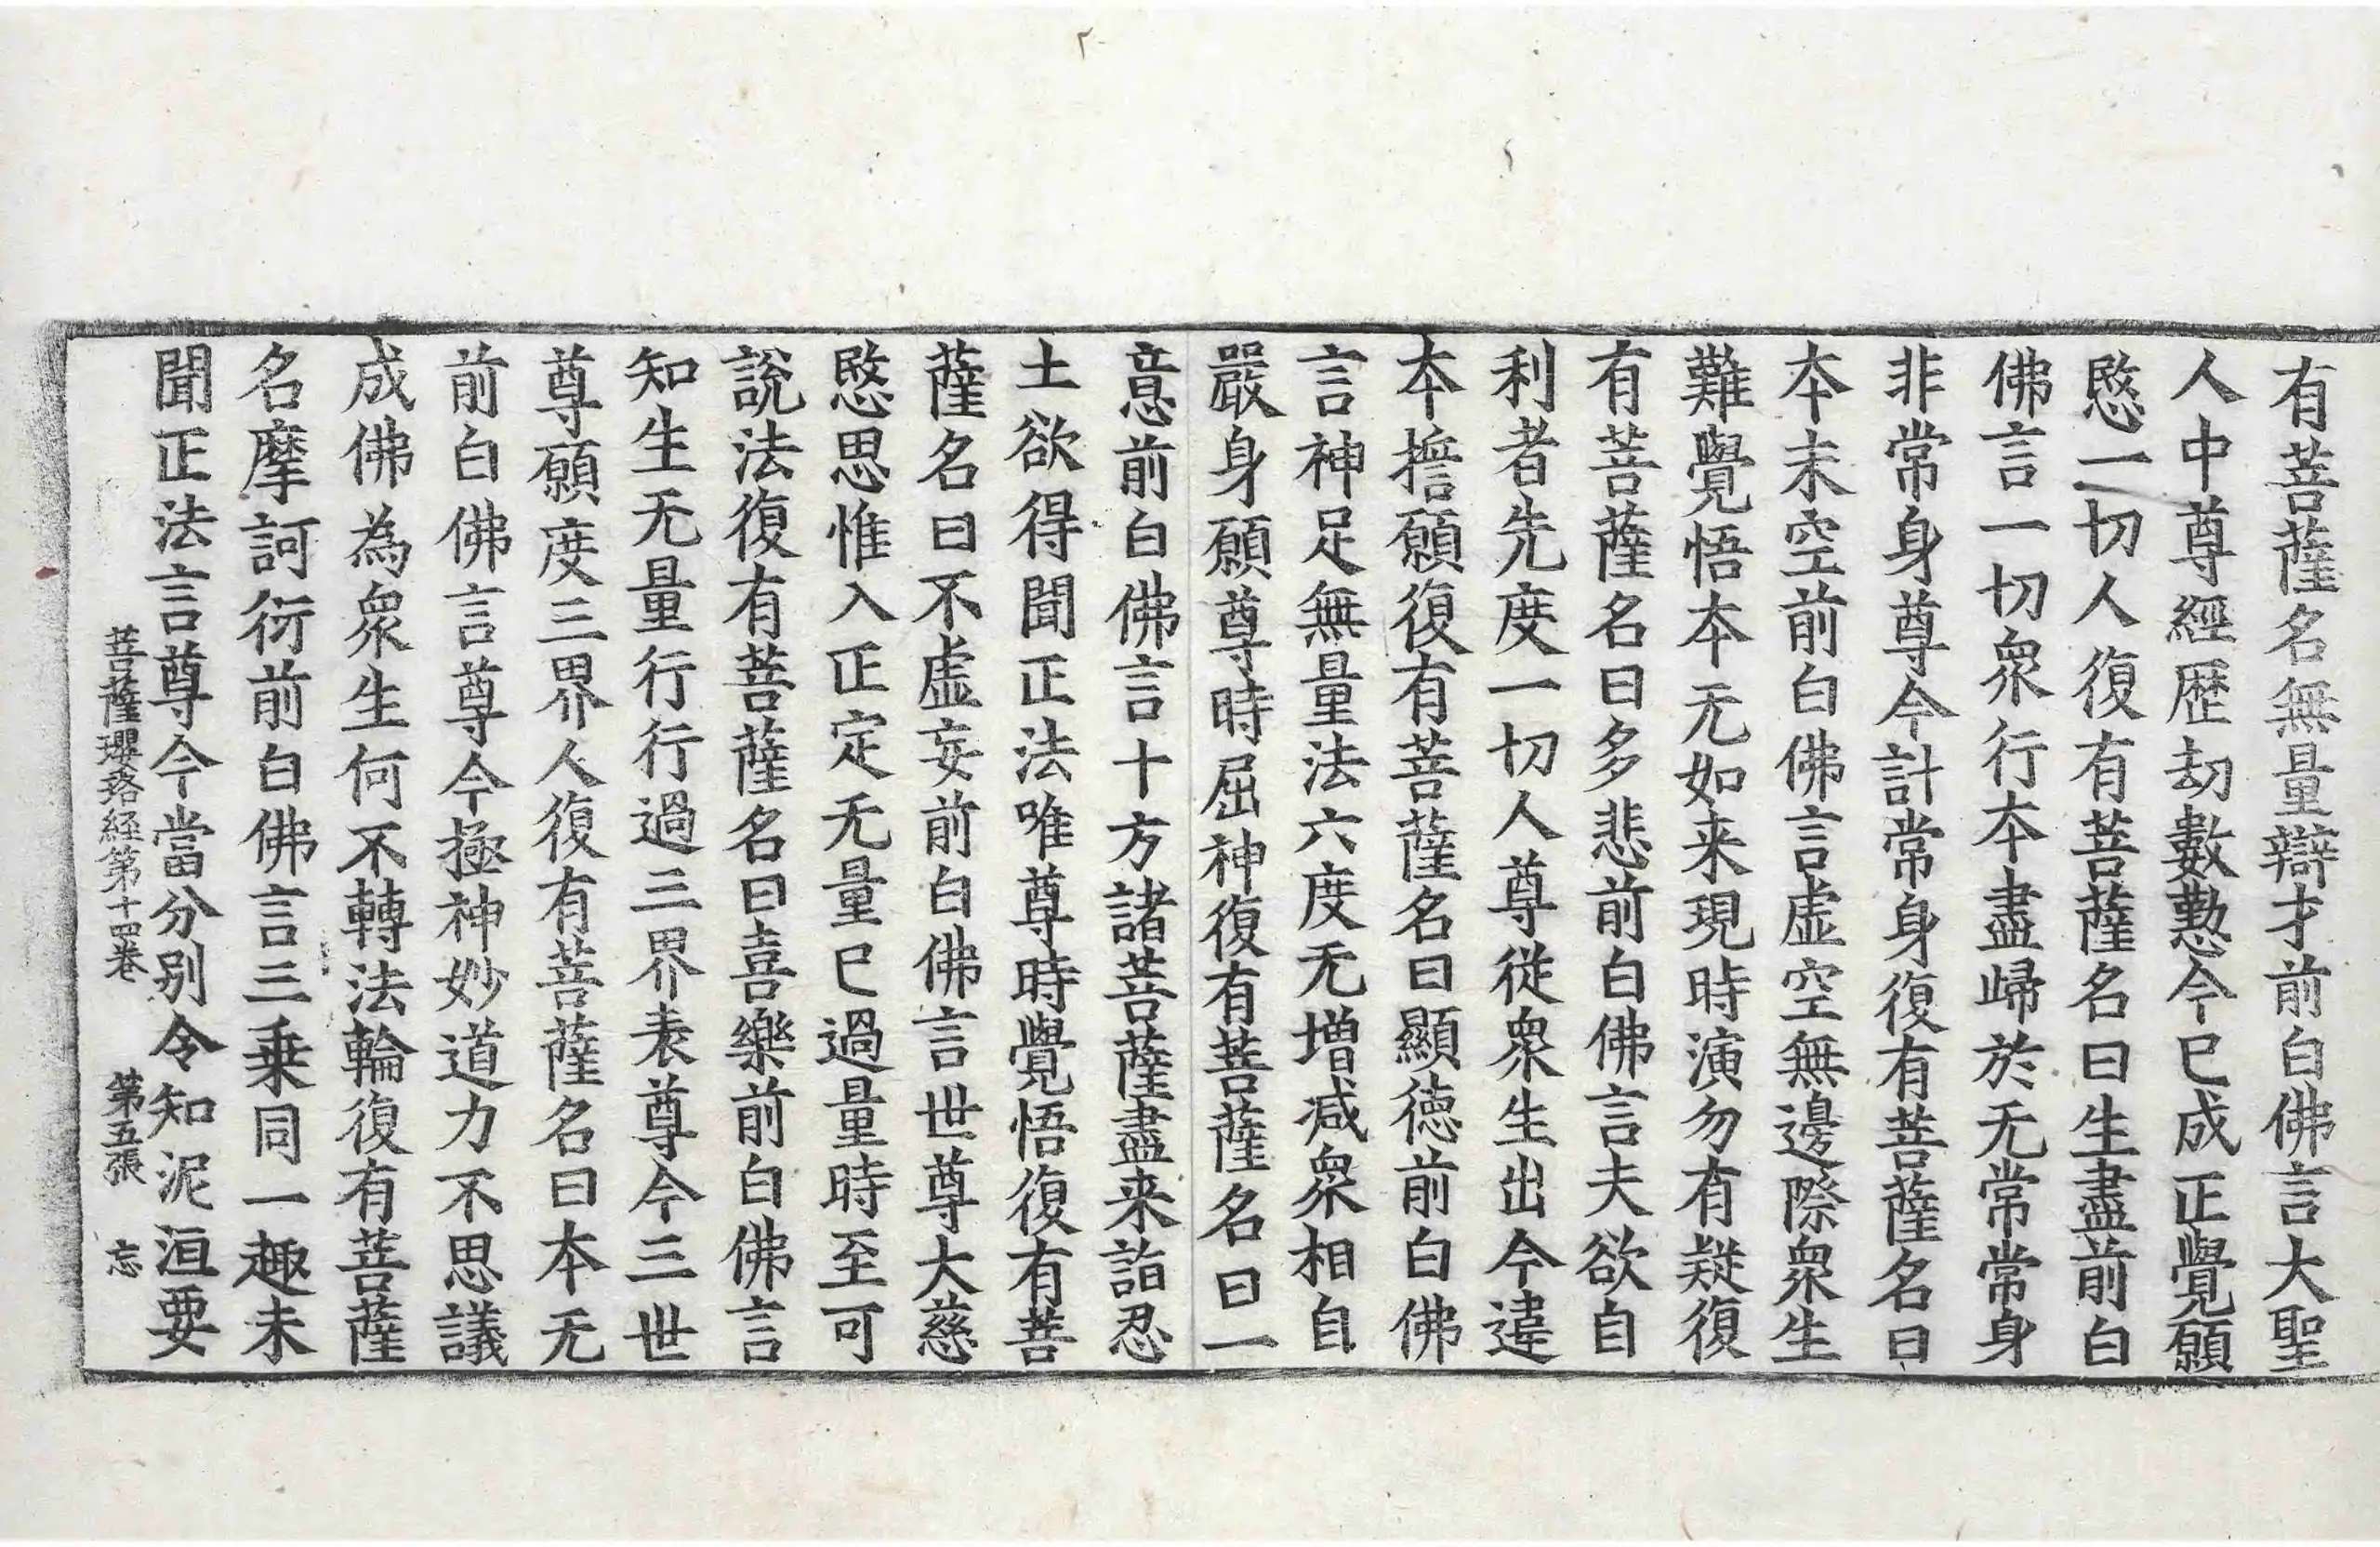 有菩薩名無量辯才前白佛言大聖
人中尊經歷劫數懃今已成正覺願
愍一切人復有菩薩名曰生盡前白
佛言一切衆行本盡歸於无常常身
非常身尊今計常身復有菩薩名曰
本末空前白佛言虛空無邊際衆生
難覺悟本无如来現時演勿有疑復
有菩薩名曰多悲前白佛言夫欲自
利者先度一切人尊從衆生出今違
本擔願復有菩薩名曰顯德前白佛
言神足無量法六度无增減衆相自
嚴身願尊時屈神復有菩薩名曰一
意前白佛言十方諸菩薩盡来詣忍
土欲得聞正法唯尊時覺悟復有菩
薩名曰不虛妄前白佛言世尊大慈
愍思惟入正定无量已過量時至可
說法復有菩薩名曰喜樂前白佛言
知生无量行行過三界表尊今三世
尊願度三界人復有菩薩名曰本无
前白佛言尊今極神妙道力不思議
成佛為衆生何不轉法輪復有菩薩
名摩訶衍前白佛言三乗同一趣未
聞正法言尊今當分別令知泥洹要
菩薩瓔珞經第十四卷 第五張 忘